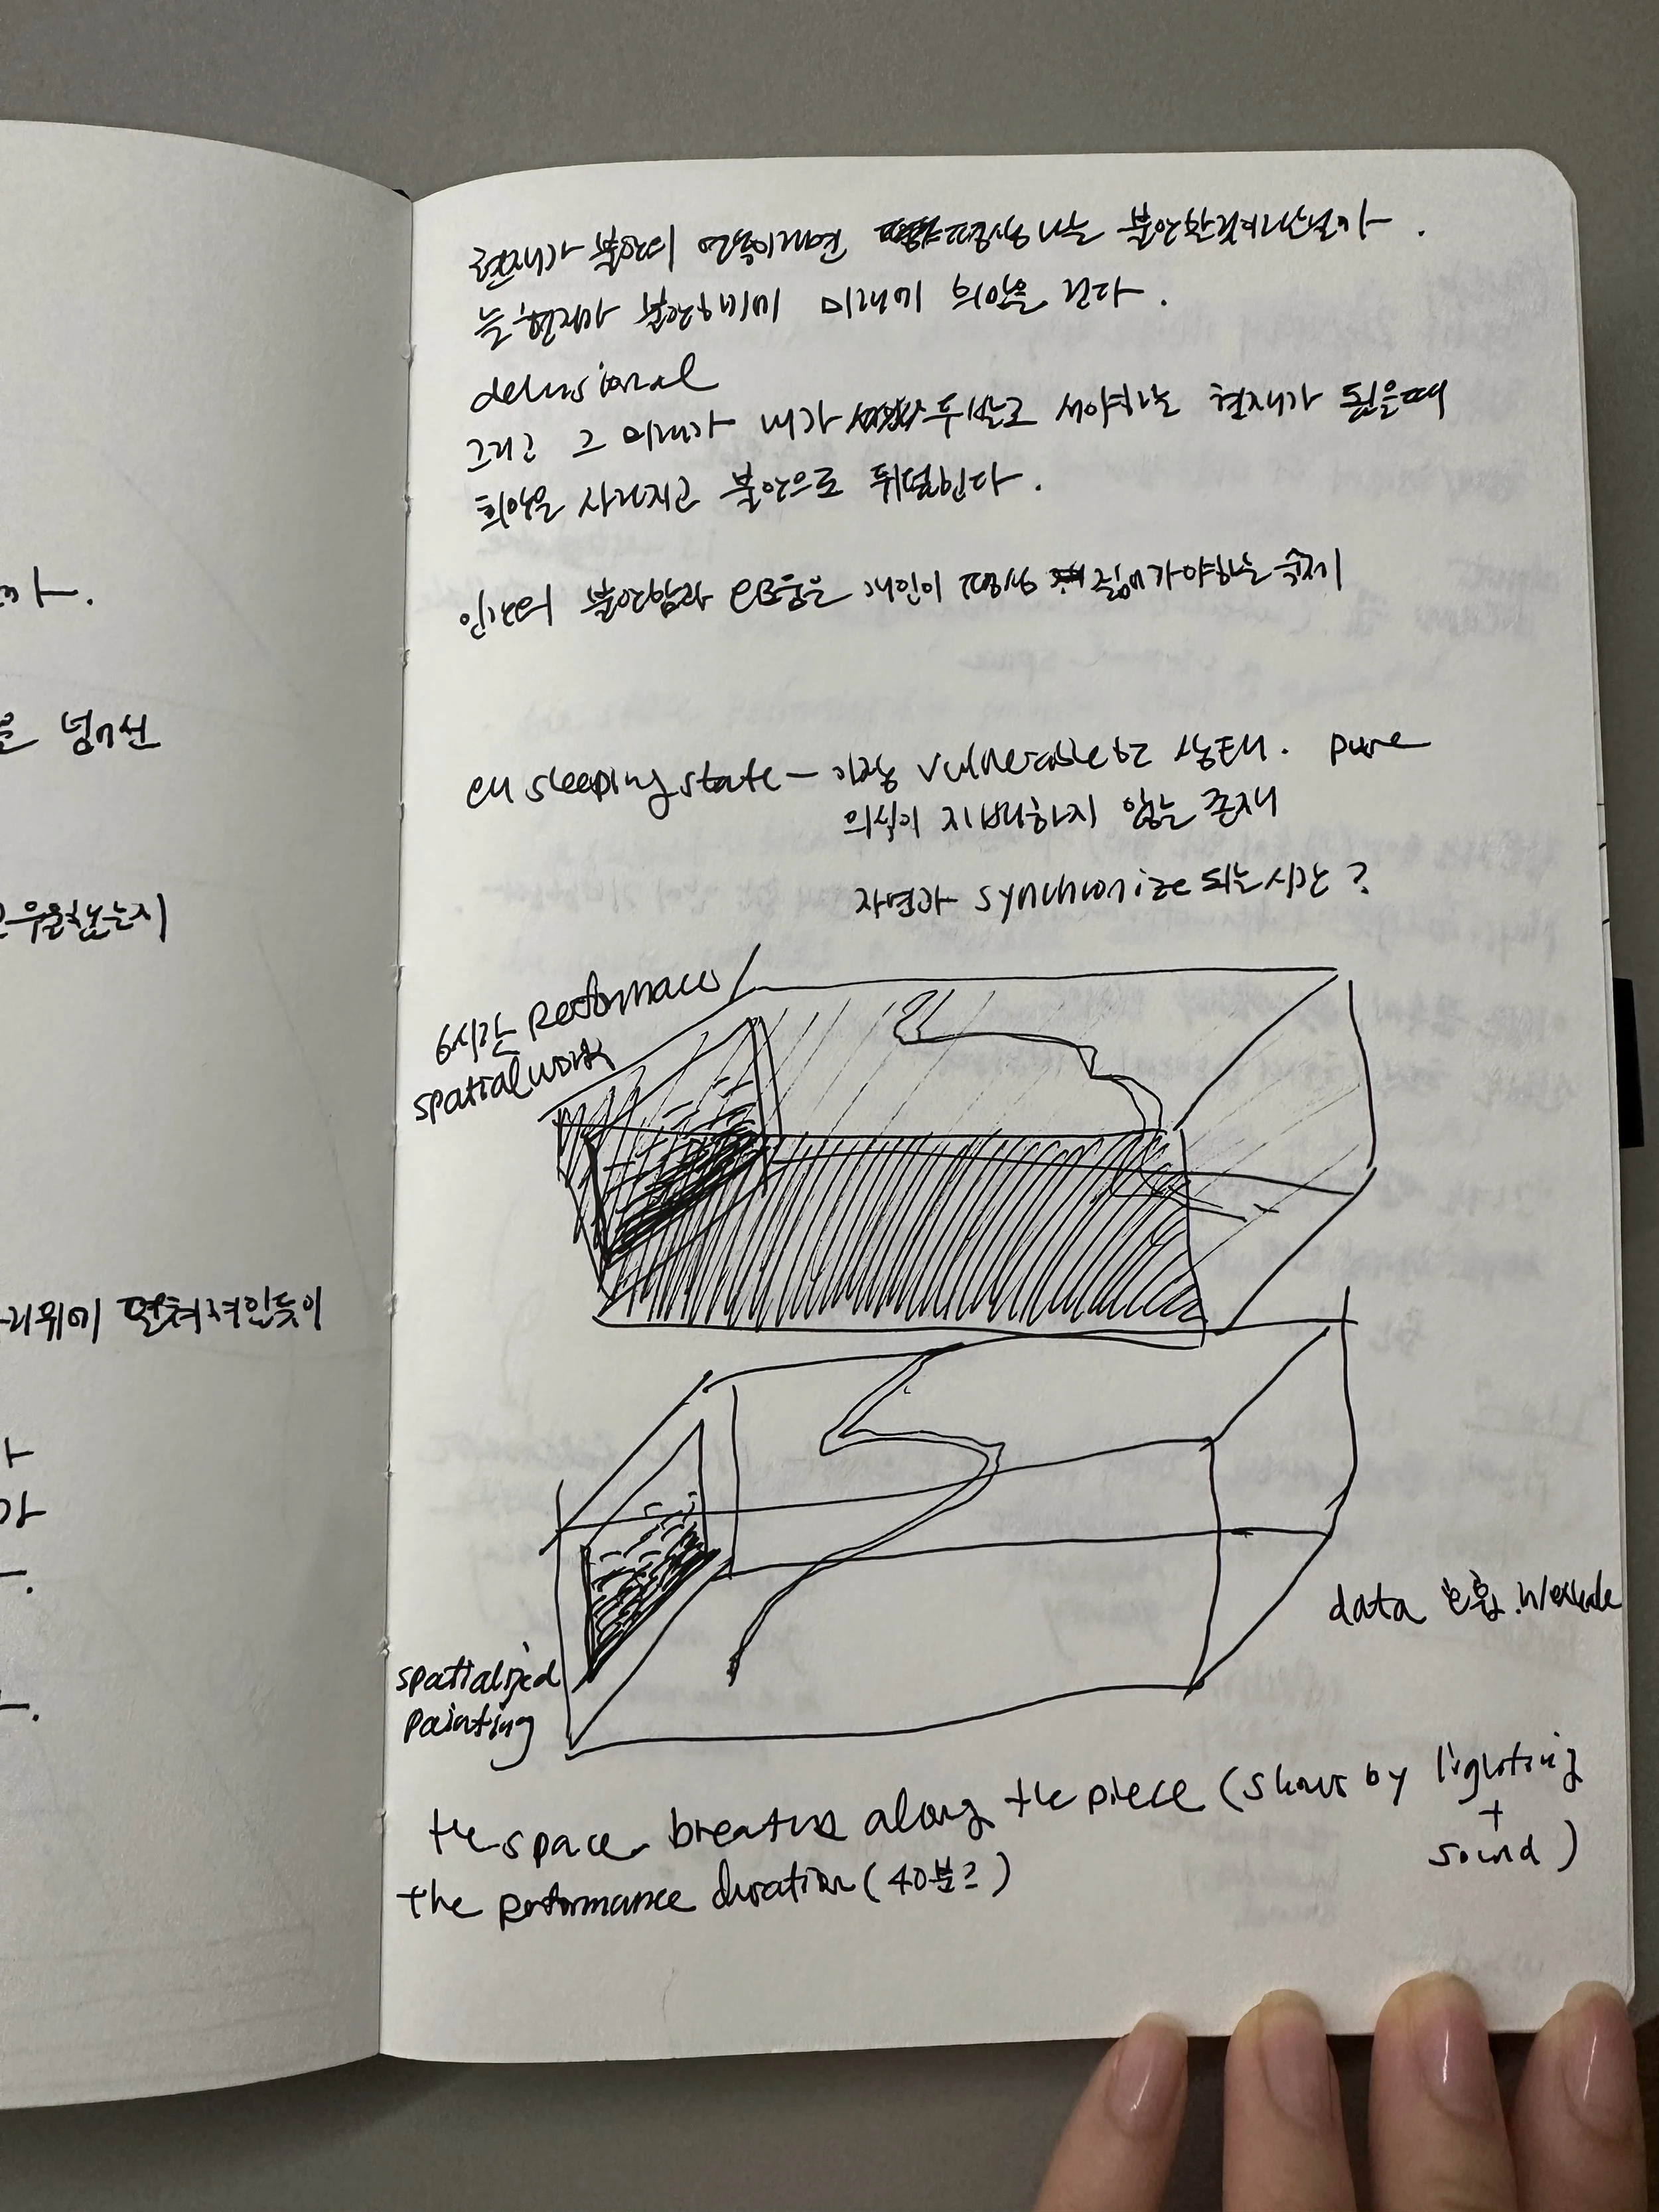 가.
을 넘어선
우울했는지
리위에 펼쳐져있듯이
가
현재가 불안의 연속이라면 평생 나는 불안한것이나 싶었다.
늘 현재가 불안하기에 미래에 희망을 건다.
delusional
그리고 그 미래가 내가 두발로 서야하는 현재가 됐을때
희망은 사라지고 불안으로 뒤덮힌다.
인간의 불안함과 은 개인이 평생 짊어가야하는 숙제
sleeping state - 가장 vulnerable한 상태. pure
의식이 지배하지 않는 존재
자연과 synchronize 되는시간?
6시간 performaces
spatial work
data 호흡. in/exhale
spatialized
painting
the space breathes along the piece (shows by lighting
+
sound)
the performance duration (40분?)